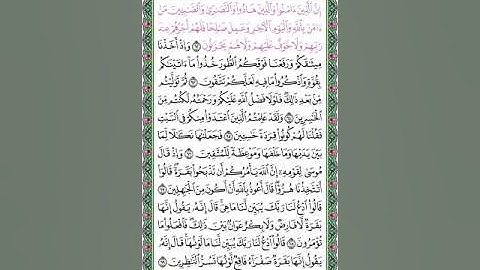 إِنَّ ٱلَّذِينَ ءَامَنُوا۟ وَٱلَّذِينَ هَادُوا۟ وَٱلنَّصَٰرَىٰ وَٱلصَّٰبِـِٔينَ مَنْ
ءَامَنَ بِٱللَّهِ وَٱلْيَوْمِ ٱلْـَٔاخِرِ وَعَمِلَ صَٰلِحًا فَلَهُمْ أَجْرُهُمْ عِندَ
رَبِّهِمْ وَلَا خَوْفٌ عَلَيْهِمْ وَلَا هُمْ يَحْزَنُونَ ٦٢ وَإِذْ أَخَذْنَا
مِيثَٰقَكُمْ وَرَفَعْنَا فَوْقَكُمُ ٱلطُّورَ خُذُوا۟ مَآ ءَاتَيْنَٰكُم
بِقُوَّةٍ وَٱذْكُرُوا۟ مَا فِيهِ لَعَلَّكُمْ تَتَّقُونَ ٦٣ ثُمَّ تَوَلَّيْتُم
مِّنۢ بَعْدِ ذَٰلِكَ فَلَوْلَا فَضْلُ ٱللَّهِ عَلَيْكُمْ وَرَحْمَتُهُۥ لَكُنتُم مِّنَ
ٱلْخَٰسِرِينَ ٦٤ وَلَقَدْ عَلِمْتُمُ ٱلَّذِينَ ٱعْتَدَوْا۟ مِنكُمْ فِى ٱلسَّبْتِ
فَقُلْنَا لَهُمْ كُونُوا۟ قِرَدَةً خَٰسِـِٔينَ ٦٥ فَجَعَلْنَٰهَا نَكَٰلًا لِّمَا
بَيْنَ يَدَيْهَا وَمَا خَلْفَهَا وَمَوْعِظَةً لِّلْمُتَّقِينَ ٦٦ وَإِذْ قَالَ
مُوسَىٰ لِقَوْمِهِۦٓ إِنَّ ٱللَّهَ يَأْمُرُكُمْ أَن تَذْبَحُوا۟ بَقَرَةً قَالُوٓا۟
أَتَتَّخِذُنَا هُزُوًا قَالَ أَعُوذُ بِٱللَّهِ أَنْ أَكُونَ مِنَ ٱلْجَٰهِلِينَ ٦٧
قَالُوا۟ ٱدْعُ لَنَا رَبَّكَ يُبَيِّن لَّنَا مَا هِىَ قَالَ إِنَّهُۥ يَقُولُ إِنَّهَا
بَقَرَةٌ لَّا فَارِضٌ وَلَا بِكْرٌ عَوَانٌۢ بَيْنَ ذَٰلِكَ فَٱفْعَلُوا۟ مَا
تُؤْمَرُونَ ٦٨ قَالُوا۟ ٱدْعُ لَنَا رَبَّكَ يُبَيِّن لَّنَا مَا لَوْنُهَا قَالَ إِنَّهُۥ
يَقُولُ إِنَّهَا بَقَرَةٌ صَفْرَآءُ فَاقِعٌ لَّوْنُهَا تَسُرُّ ٱلنَّٰظِرِينَ ٦٩